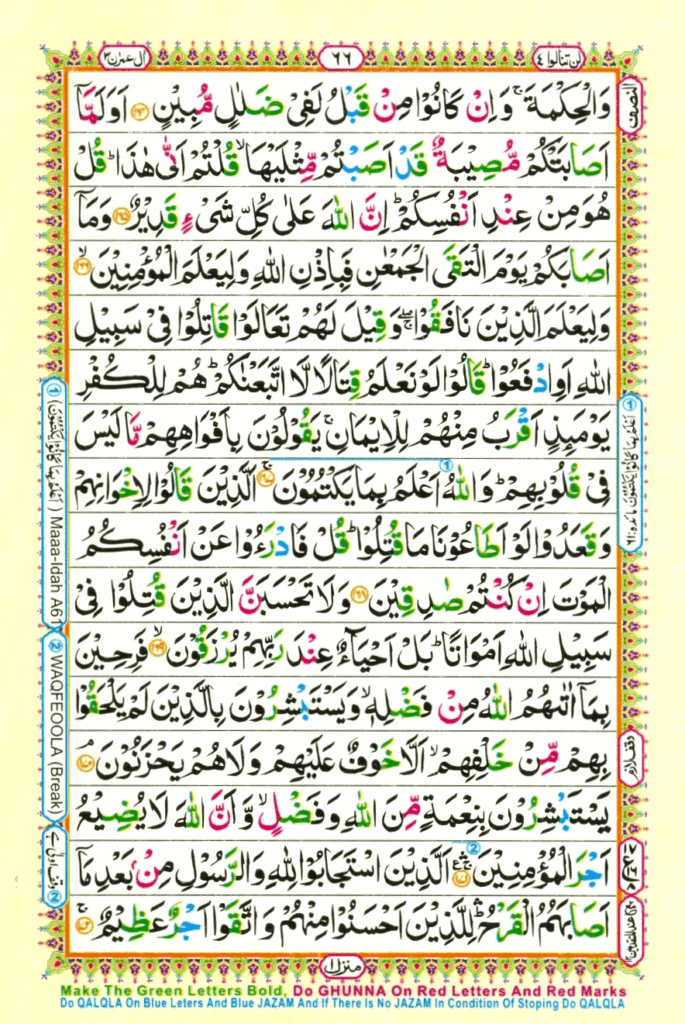 اٰل عمرٰن ٣
٦٦
لن تنالوا ٤
وَالْحِكْمَةَ ۚ وَاِنْ كَانُوْا مِنْ قَبْلُ لَفِىْ ضَلٰلٍ مُّبِيْنٍ ﴿١٦٤﴾ اَوَلَمَّاۤ
اَصَابَتْكُمْ مُّصِيْبَةٌ قَدْ اَصَبْتُمْ مِّثْلَيْهَا ۙ قُلْتُمْ اَنّٰى هٰذَا ؕ قُلْ
هُوَ مِنْ عِنْدِ اَنْفُسِكُمْ ؕ اِنَّ اللّٰهَ عَلٰى كُلِّ شَىْءٍ قَدِيْرٌ ﴿١٦٥﴾ وَمَاۤ
اَصَابَكُمْ يَوْمَ الْتَقَى الْجَمْعٰنِ فَبِاِذْنِ اللّٰهِ وَلِيَعْلَمَ الْمُؤْمِنِيْنَ ۙ﴿١٦٦﴾
وَلِيَعْلَمَ الَّذِيْنَ نَافَقُوْا ۖۚ وَقِيْلَ لَهُمْ تَعَالَوْا قَاتِلُوْا فِىْ سَبِيْلِ
اللّٰهِ اَوِ ادْفَعُوْا ؕ قَالُوْا لَوْ نَعْلَمُ قِتَالًا لَّا اتَّبَعْنٰكُمْ ؕ هُمْ لِلْكُفْرِ
يَوْمَىِٕذٍ اَقْرَبُ مِنْهُمْ لِلْاِيْمَانِ ۚ يَقُوْلُوْنَ بِاَفْوَاهِهِمْ مَّا لَيْسَ
فِىْ قُلُوْبِهِمْ ؕ وَاللّٰهُ اَعْلَمُ بِمَا يَكْتُمُوْنَ ۚ﴿١٦٧﴾ اَلَّذِيْنَ قَالُوْا لِاِخْوَانِهِمْ
وَقَعَدُوْا لَوْ اَطَاعُوْنَا مَا قُتِلُوْا ؕ قُلْ فَادْرَءُوْا عَنْ اَنْفُسِكُمُ
الْمَوْتَ اِنْ كُنْتُمْ صٰدِقِيْنَ ﴿١٦٨﴾ وَلَا تَحْسَبَنَّ الَّذِيْنَ قُتِلُوْا فِىْ
سَبِيْلِ اللّٰهِ اَمْوَاتًا ؕ بَلْ اَحْيَآءٌ عِنْدَ رَبِّهِمْ يُرْزَقُوْنَ ۙ﴿١٦٩﴾ فَرِحِيْنَ
بِمَاۤ اٰتٰىهُمُ اللّٰهُ مِنْ فَضْلِهٖ ۙ وَيَسْتَبْشِرُوْنَ بِالَّذِيْنَ لَمْ يَلْحَقُوْا
بِهِمْ مِّنْ خَلْفِهِمْ ۙ اَلَّا خَوْفٌ عَلَيْهِمْ وَلَا هُمْ يَحْزَنُوْنَ ۘ﴿١٧٠﴾
يَسْتَبْشِرُوْنَ بِنِعْمَةٍ مِّنَ اللّٰهِ وَفَضْلٍ ۙ وَّاَنَّ اللّٰهَ لَا يُضِيْعُ
اَجْرَ الْمُؤْمِنِيْنَ ۚ﴿١٧١﴾ اَلَّذِيْنَ اسْتَجَابُوْا لِلّٰهِ وَالرَّسُوْلِ مِنْۢ بَعْدِ مَاۤ
اَصَابَهُمُ الْقَرْحُ ؕ لِلَّذِيْنَ اَحْسَنُوْا مِنْهُمْ وَاتَّقَوْا اَجْرٌ عَظِيْمٌ ۚ﴿١٧٢﴾
النصف
وقف لازم
① (اَعْلَمُ بِمَا كَانُوْا يَكْتُمُوْنَ) Maaa-Idah A61
② WAQFEOOLA (Break)
② وقف اولٰى ہے
① اَعْلَمُ بِمَا كَانُوْا يَكْتُمُوْنَ مائدہ: ٦١
منزل ١
Make The Green Letters Bold, Do GHUNNA On Red Letters And Red Marks
Do QALQLA On Blue Leters And Blue JAZAM And If There Is No JAZAM In Condition Of Stoping Do QALQLA